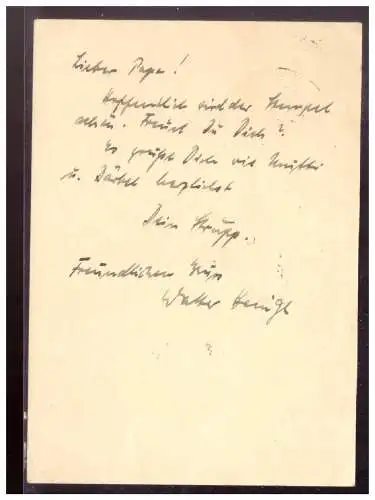 Lieber Papa!
Hoffentlich wird der Stempel
schön. Freust Du Dich?
Es grüßt Dich wie Mutti
u. Bärbel herzlichst
Dein Strupp.
Freundlichen Gruß
Walter